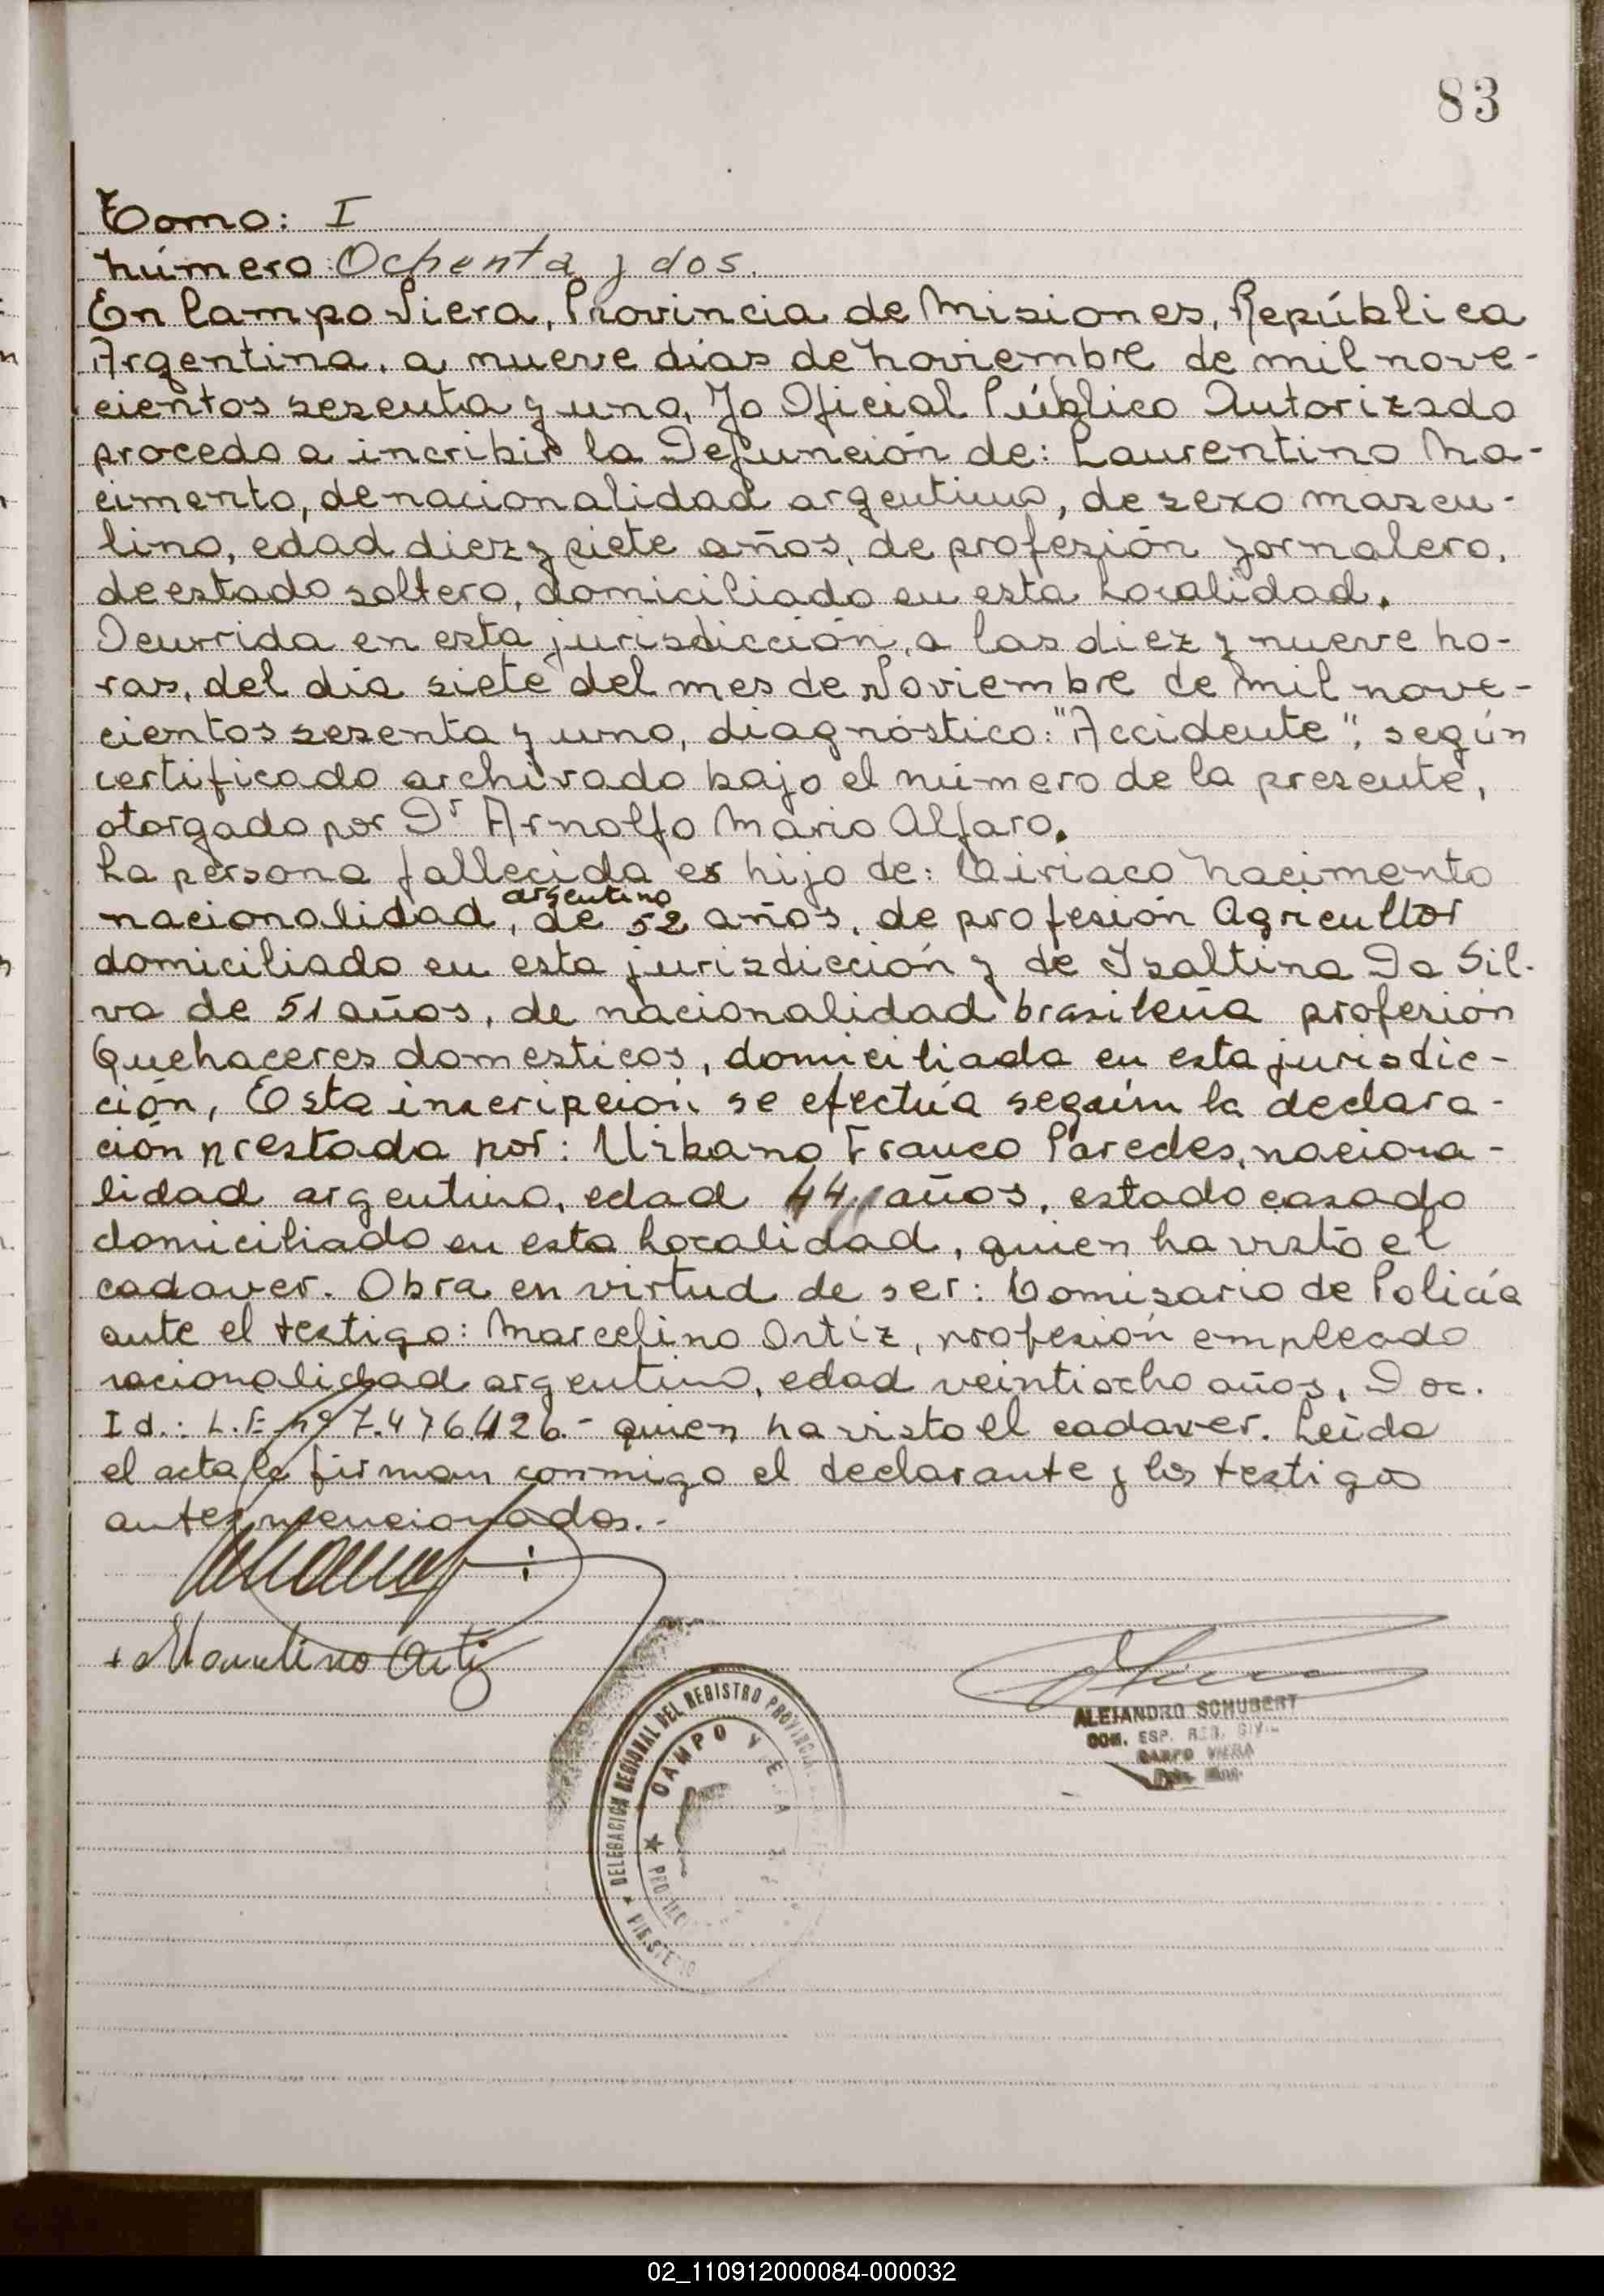 83
Tomo: I
Número: Ochenta y dos.
En Campo Viera, Provincia de Misiones, República
Argentina, a nueve días de Noviembre de mil nove-
cientos sesenta y uno, Yo Oficial Público Autorizado
procedo a incribir la Defunción de: Laurentino Na-
cimento, de nacionalidad argentino, de sexo mascu-
lino, edad diez y siete años, de profesión jornalero,
de estado soltero, domiciliado en esta Localidad.
Ocurrida en esta jurisdicción, a las diez y nueve ho-
ras, del día siete del mes de Noviembre de mil nove-
cientos sesenta y uno, diagnóstico: "Accidente", según
certificado archivado bajo el número de la presente,
otorgado por Dr Arnolfo Mario Alfaro.
La persona fallecida es hijo de: Ciriaco Nacimento
argentino
nacionalidad, de 52 años, de profesión Agricultor
domiciliado en esta jurisdicción y de Isaltina Da Sil-
va de 51 años, de nacionalidad brasileña profesión
Quehaceres domesticos, domiciliada en esta jurisdic-
ción, Esta inscripción se efectúa según la declara-
ción prestada por: Urbano Franco Paredes, naciona-
lidad argentino, edad 44 años, estado casado
domiciliado en esta Localidad, quien ha visto el
cadaver. Obra en virtud de ser: Comisario de Policía
ante el testigo: Marcelino Ortíz, profesión empleado
nacionalidad argentino, edad veintiocho años, Doc.
Id.: L.E. nº 7.476.426.- quien ha visto el cadaver. Leída
el acta la firman conmigo el declarante y los testigos
antes mencionados.-
+ Marcelino Ortiz
ALEJANDRO SCHUBERT
COM. ESP. REG. CIVIL
CAMPO VIERA
DELEGACION REGIONAL DEL REGISTRO PROVINCIAL
CAMPO VIERA
02_110912000084-000032